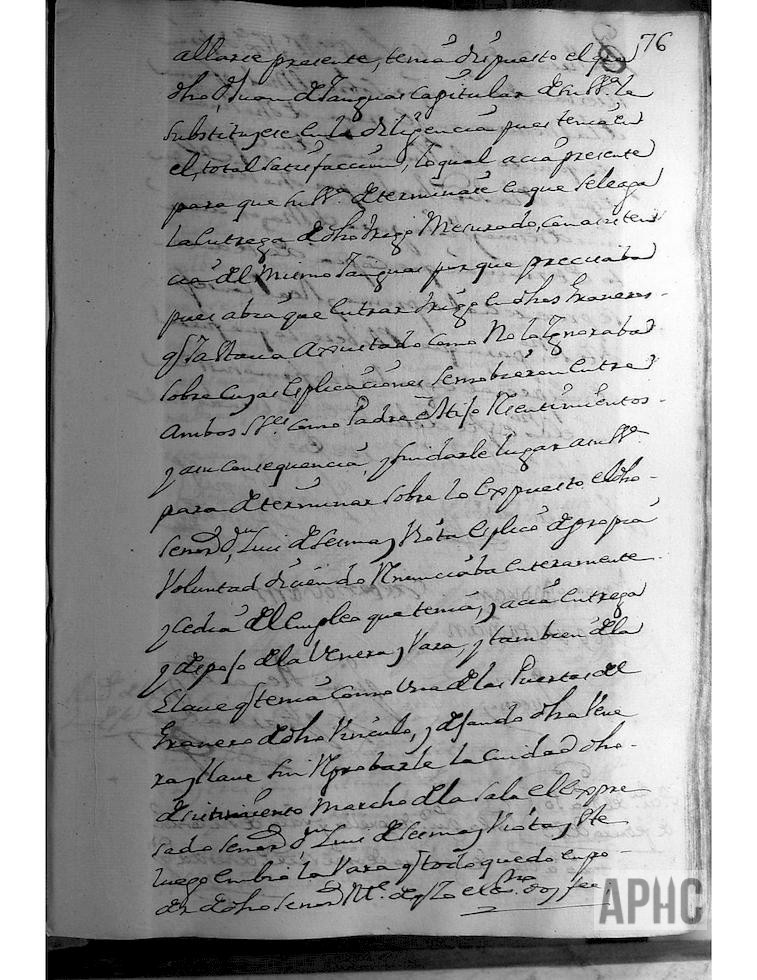 76
allarse presente, tenia dispuesto el que
dho Dn Juan de Tanguas Capitular de su Sª la
substituyese en la diligencia pues tenia en
el, total satisfaccion, lo qual acia presente
para que su Sª determinase en que se le aga
la entrega de dho trigo Mesurado, con asisten
cia del Mismo Tanguas porque precisaba
pues abra que entrar trigo en dhos Graneros
qe ya estava Ajustado como No lo Ignoraba
sobre cuyas esplicaciones se mobieron entre
Ambos Sres como Padre è Hijo Resentimientos
y a su consequencia, y sin darle lugar a su Sª
para determinar sobre lo Exppuesto el dho
Senor Dn Luis de Sesma y Riota esplicò de propia
Voluntad diciendo Renunciaba enteramente
y cedia del empleo que tenia, y acia entrega
y deposo de la Venera y Vara, y tambien de la
Llave qe tenia como Una de las Puertas del
Granero de dho Vinculo, y dejando dha Vene
ra y llave sin Aprobarle la Ciudad dho
desistimiento Marcho de la Sala el Exppre
sado Senor Dn Luis de Sesma y Riota y Este
luego embiò la Vara qe todo quedo en po
der de dho Senor Alce de qe Yo el Esno doy fee
APHC